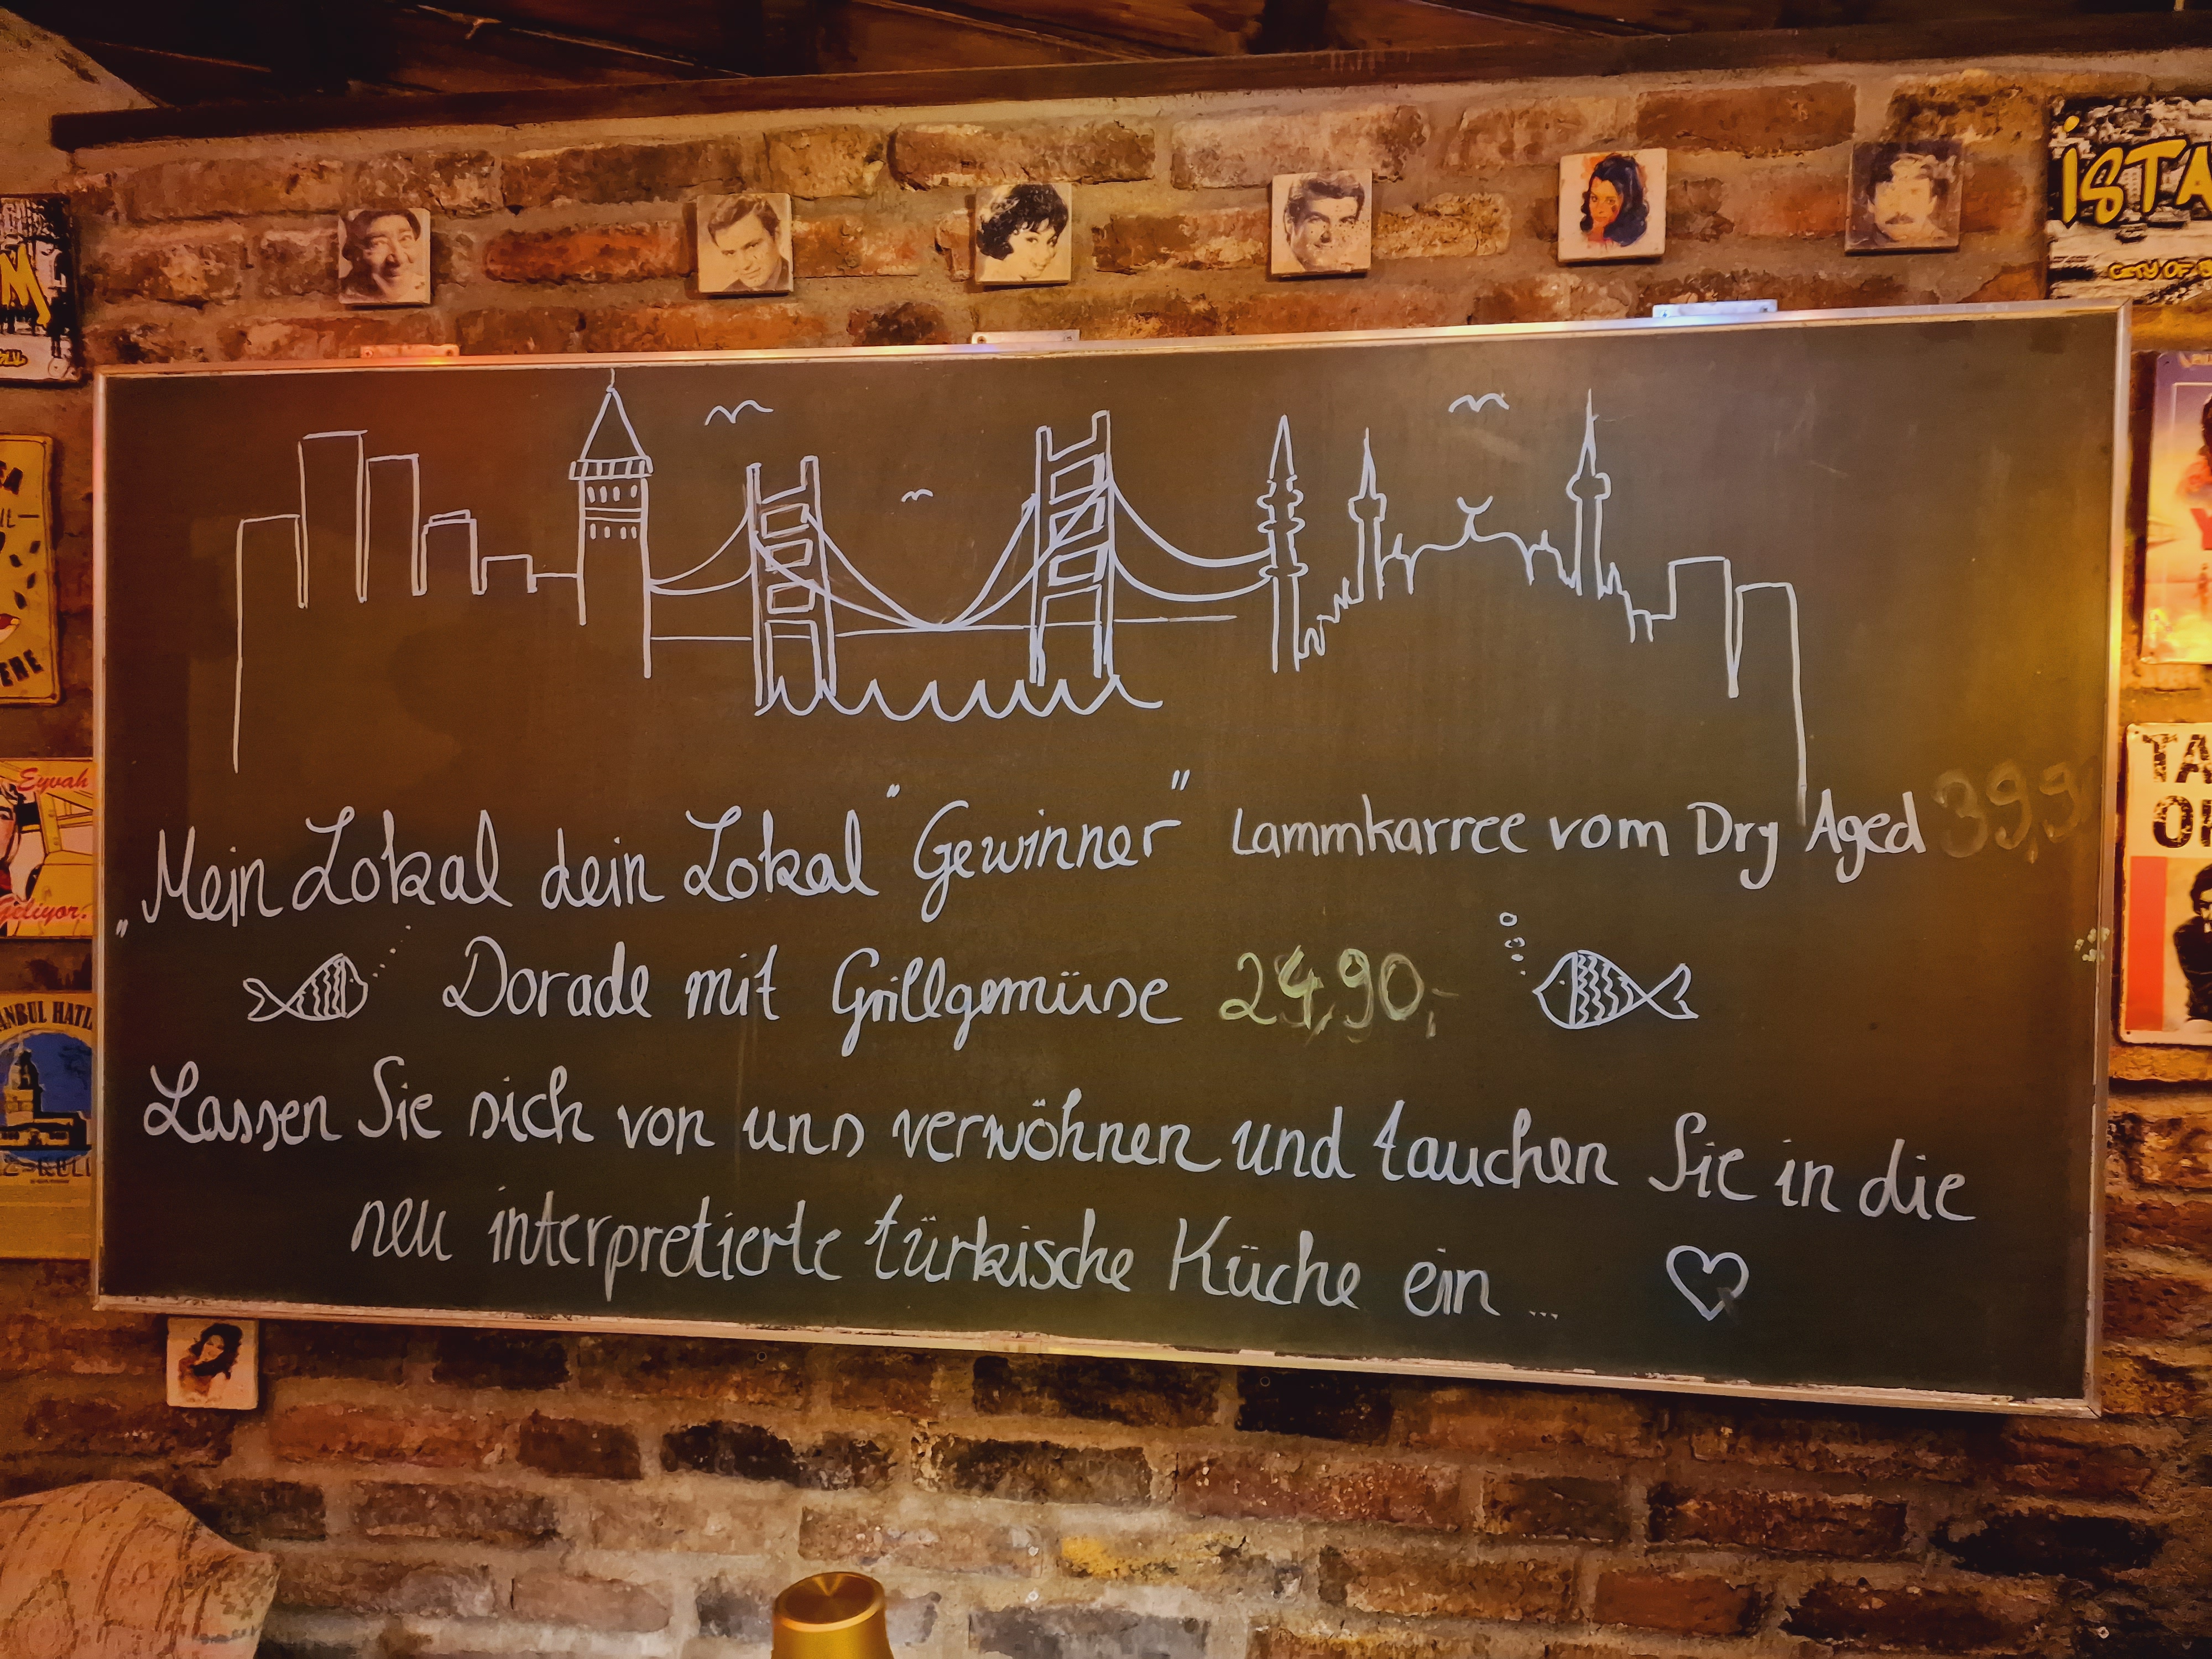 İSTA
CITY OF
M
Eyvah
Geliyor.
ERE
TA
ANBUL HATI
„Mein Lokal dein Lokal "Gewinner" Lammkarree vom Dry Aged 39,9
Dorade mit Grillgemüse 24,90,-
Lassen Sie sich von uns verwöhnen und tauchen Sie in die
neu interpretierte türkische Küche ein ...